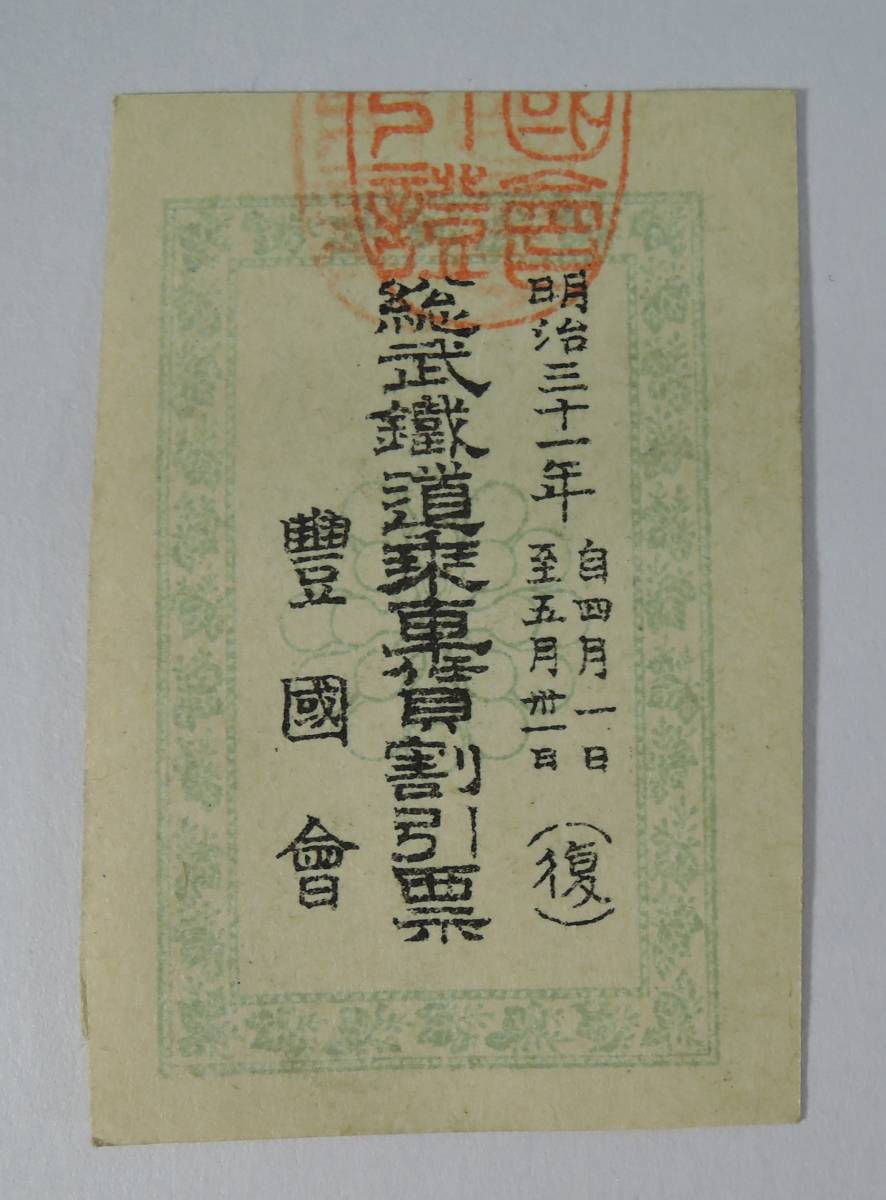 明治三十一年
自四月一日
至五月卅一日
(復)
總武鐵道乘車賃割引票
豐國會
國會
引證